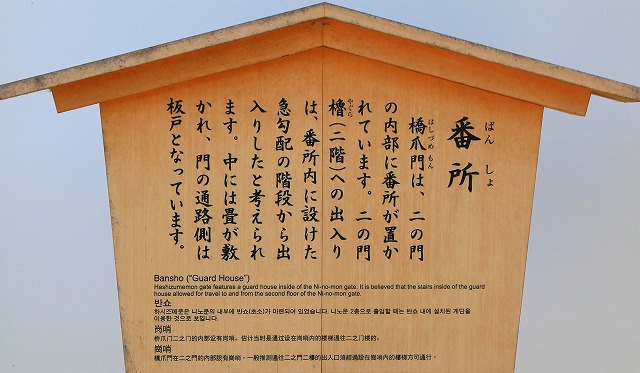 番所
ばん しょ
橋爪門は、二の門
はしづめ もん
の内部に番所が置か
れています。二の門
櫓(二階)への出入り
やぐら
は、番所内に設けた
急勾配の階段から出
入りしたと考えられ
ます。中には畳が敷
かれ、門の通路側は
板戸となっています。
Bansho ("Guard House")
Hashizumemon gate features a guard house inside of the Ni-no-mon gate. It is believed that the stairs inside of the guard
house allowed for travel to and from the second floor of the Ni-no-mon gate.
반쇼
하시즈메몬은 니노몬의 내부에 반쇼(초소)가 마련되어 있었습니다. 니노몬 2층으로 출입할 때는 반쇼 내에 설치된 계단을
이용한 것으로 보입니다.
岗哨
桥爪门二之门的内部设有岗哨。估计当时是通过设在岗哨内的楼梯通往二之门楼的。
崗哨
橋爪門在二之門的內部設有崗哨。一般推測通往二之門二樓的出入口須經過設在崗哨內的樓梯方可通行。